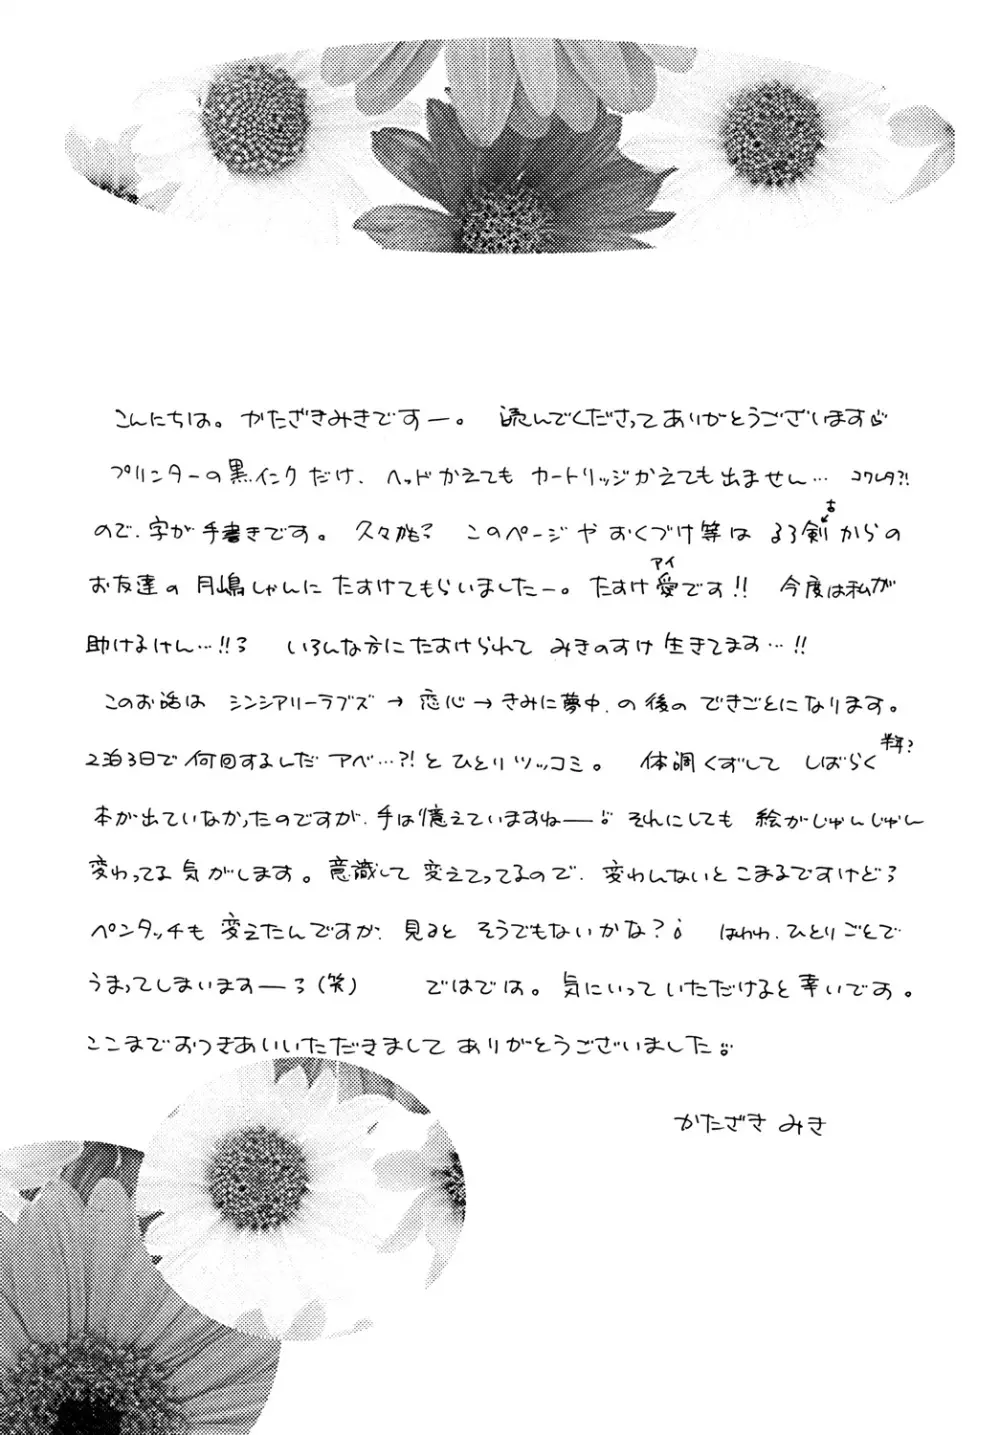 こんにちは。かたざきみきですー。 読んでくださってありがとうございます
プリンターの黒インクだけ、ヘッドかえても カートリッジかえても出ません… コワレタ?!
ので、字が手書きです。 久々 このページや おくづけ等は るろ剣からの
古
お友達の 月嶋しゃんに たすけてもらいましたー。たすけ愛です!! 今度は私が
アイ
助けるけん…!! いろんな方にたすけられて みきのすけ 生きてます…!!
このお話は シンシアリーラブズ → 恋心 → きみに夢中. の後の できごとになります。
2泊3日で何回するしだ アベ…?! と ひとりツッコミ。 体調くずして しばらく
半年?
本が出ていなかったのですが、手は憶えていますねー それにしても 絵がじゅんじゅん
変わってる 気がします。意識して 変えてってるので、変わんないと こまるですけど
ペンタッチも 変えたんですが、見ると そうでもないかな? はわわ、ひとりごとで
うまってしまいますー(笑) ではでは。気にいって いただけると 幸いです。
ここまでおつきあいいただきまして ありがとうございました
かたざき みき